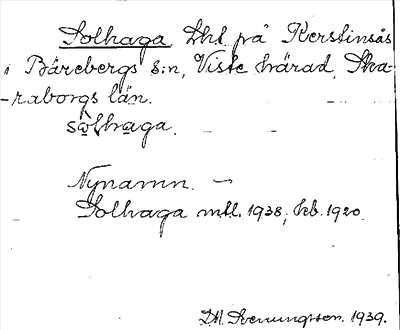 Solhaga Lht. på Kerstinsås
i Bärebergs s:n, Viste härad, Ska-
-raborgs län.
sòlhaga.
Nynamn. —
Solhaga mtl. 1938, kb. 1920.
D.H. Svenungsson. 1939.